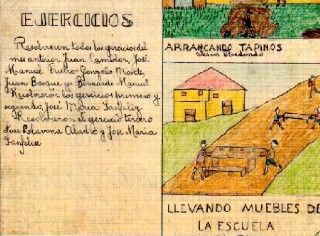 EJERCICIOS
Resolvieron todos los ejercicios del
mes anterior: Juan Cambior, José
Manuel Gonzalo
Juan Bosque y Bernardo Manuel
Resolvieron los ejercicios primero y
segundo, José Maria Sanfeliz
Resolvieron el ejercicio tercero
José y José Maria
Sanfeliz
ARRANCANDO TAPINOS
Jesús Obedondo
LLEVANDO MUEBLES DE
LA ESCUELA